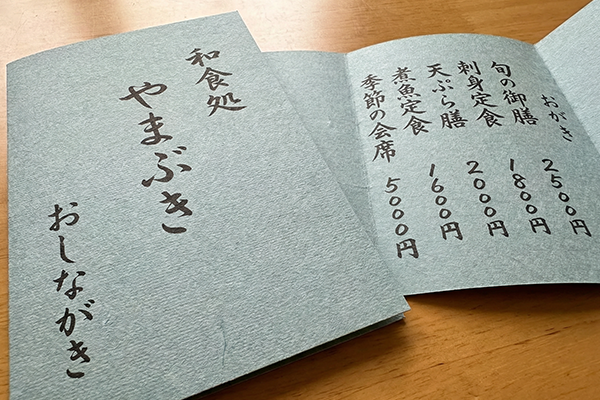 和食処
やまぶき
おしながき
おがき 2500円
旬の御膳 1800円
刺身定食 2000円
天ぷら膳 1600円
煮魚定食
季節の会席 5000円